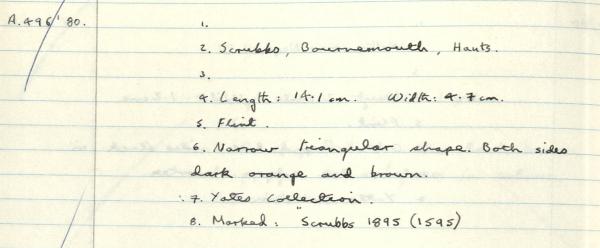 A.496'80. 1.
2. Scrubbs, Bournemouth, Hants.
3.
4. Length: 14.1 cm. Width: 4.7 cm.
5. Flint.
6. Narrow triangular shape. Both sides
dark orange and brown.
7. Yates Collection.
8. Marked: "Scrubbs 1895 (1595)